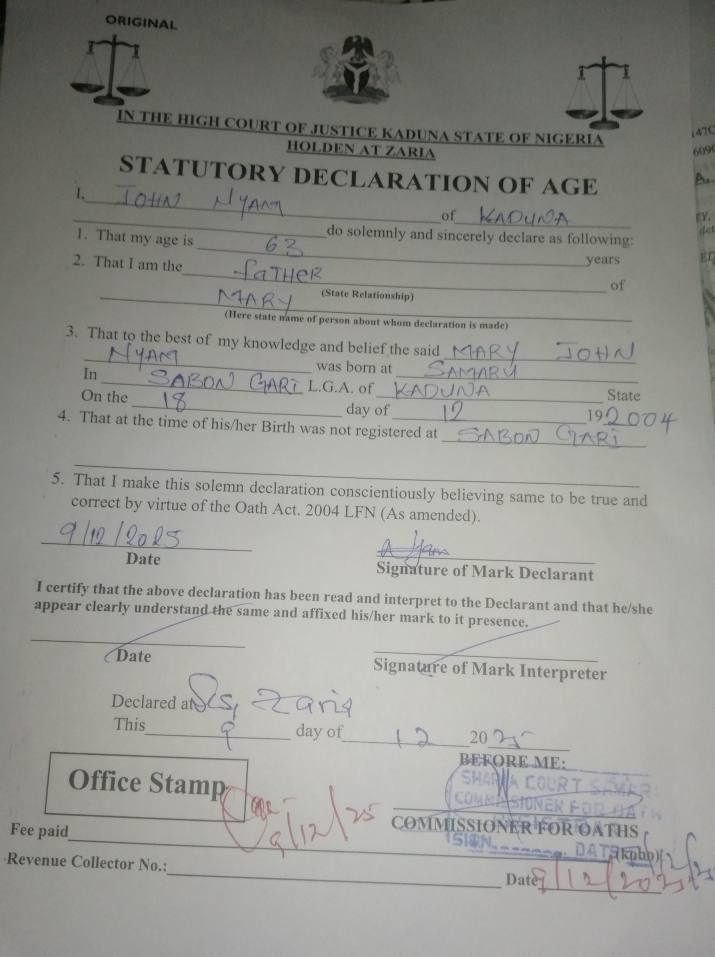 ORIGINAL
IN THE HIGH COURT OF JUSTICE KADUNA STATE OF NIGERIA
HOLDEN AT ZARIA
STATUTORY DECLARATION OF AGE
I, JOHN NYAM of KADUNA
do solemnly and sincerely declare as following:
1. That my age is 63 years
2. That I am the FATHER of
(State Relationship)
MARY
(Here state name of person about whom declaration is made)
3. That to the best of my knowledge and belief the said MARY JOHN
NYAM was born at SAMARU
In SABON GARI L.G.A. of KADUNA State
On the 18 day of 12 192004
4. That at the time of his/her Birth was not registered at SABON GARI
5. That I make this solemn declaration conscientiously believing same to be true and
correct by virtue of the Oath Act. 2004 LFN (As amended).
9/12/2025
Date
Signature of Mark Declarant
I certify that the above declaration has been read and interpret to the Declarant and that he/she
appear clearly understand the same and affixed his/her mark to it presence.
Date
Signature of Mark Interpreter
Declared at Zaria
This 9 day of 12 2025
BEFORE ME:
Office Stamp
SHARIA COURT
COMMISSIONER FOR OATH
9/12/25
COMMISSIONER FOR OATHS
SIGN DATE
Fee paid
Revenue Collector No.:
Date 9/12/2025